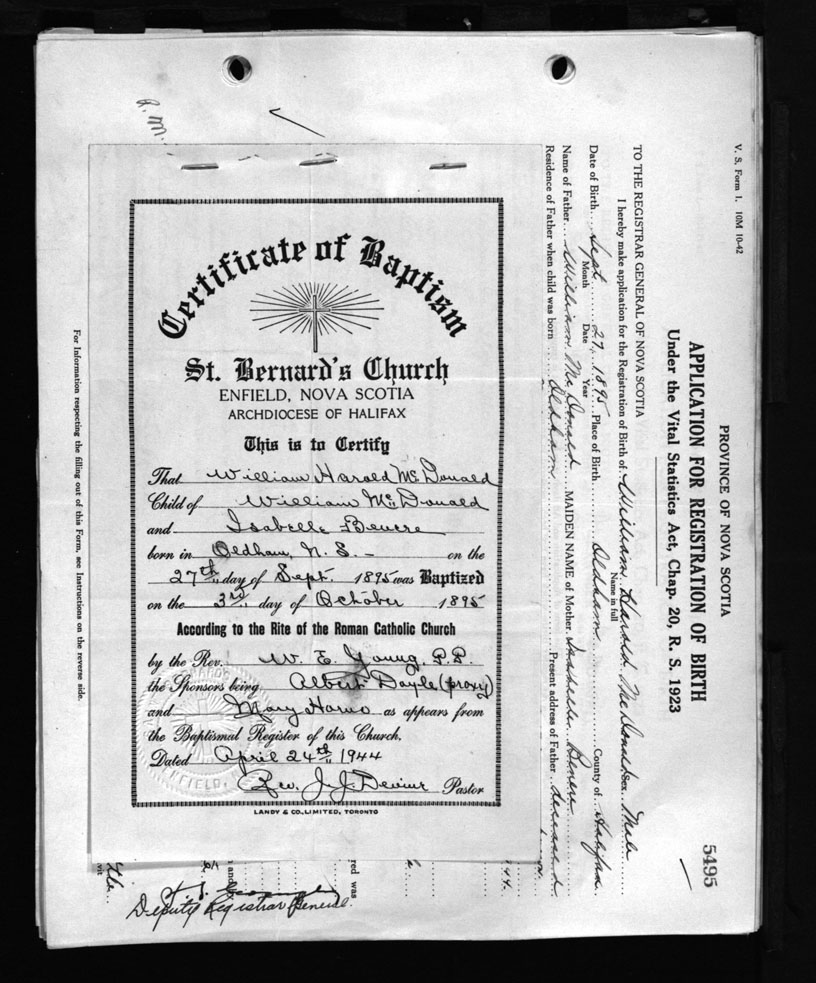 V. S. Form 1. 10M 10-42
PROVINCE OF NOVA SCOTIA
5495
APPLICATION FOR REGISTRATION OF BIRTH
Under the Vital Statistics Act, Chap. 20, R. S. 1923
TO THE REGISTRAR GENERAL OF NOVA SCOTIA
I hereby make application for the Registration of Birth of William Harold McDonald Sex Male
Name in full
Date of Birth Sept 27, 1895 Place of Birth Oldham County of Halifax
Month Date Year
Name of Father William McDonald MAIDEN NAME of Mother Isabelle
Residence of Father when child was born Oldham Present address of Father deceased
For Information respecting the filling out of this Form, see Instructions on the reverse side.
Certificate of Baptism
St. Bernard's Church
ENFIELD, NOVA SCOTIA
ARCHDIOCESE OF HALIFAX
This is to Certify
That William Harold Mc Donald
Child of William Mc Donald
and Isabelle
born in Oldham, N. S. - on the
27th day of Sept. 1895 was Baptized
on the 3rd day of October 1895
According to the Rite of the Roman Catholic Church
by the Rev. W. E. Young, P.P.
the Sponsors being Albert Doyle (proxy)
and Mary as appears from
the Baptismal Register of this Church.
Dated April 24th 1944
Rev. J. J. Pastor
LANDY & CO., LIMITED, TORONTO
ENFIELD
red was
Deputy Registrar General